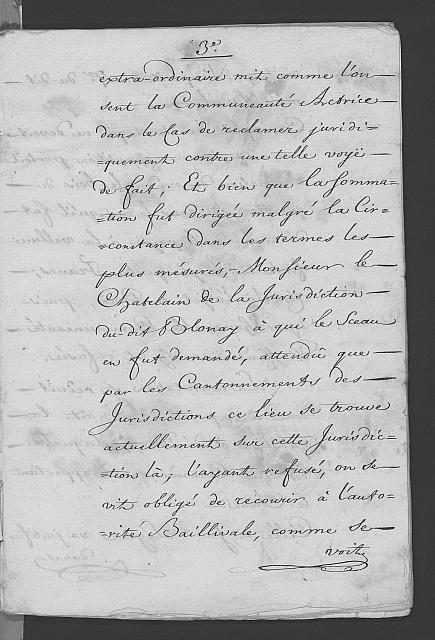 3e.
extra-ordinaire mit comme l'on
sent la Communeauté Actrice
dans le Cas de reclamer juridi=
=quement contre une telle voÿe
de fait, Et bien que la Somma=
=tion fut dirigée malgré la Cir=
=constance dans les termes les
plus mésurés, Monsieur le
Chatelain de la Jurisdiction
du-dit Blonay à qui le Sceau
en fut demandé, attendû que
par les Cantonnements des
Jurisdictions ce lieu se trouve
actuellement sur cette Jurisdic=
=tion là; l'ayant refusé, on se
vit obligé de recourir à l'auto=
=rité Baillivale, comme se
voit